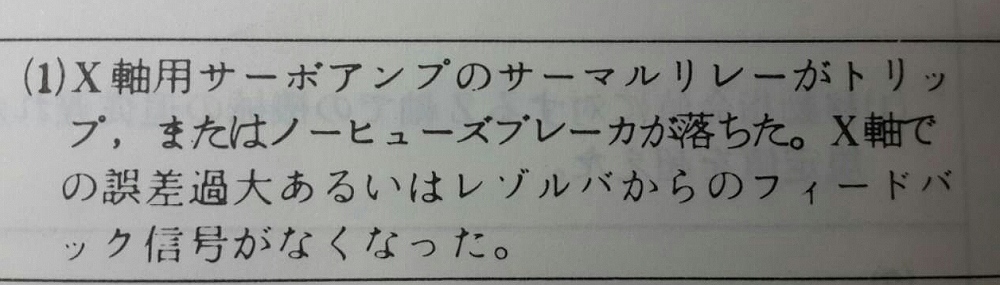 (1)X軸用サーボアンプのサーマルリレーがトリッ
プ，またはノーヒューズブレーカが落ちた。X軸で
の誤差過大あるいはレゾルバからのフィードバ
ック信号がなくなった。